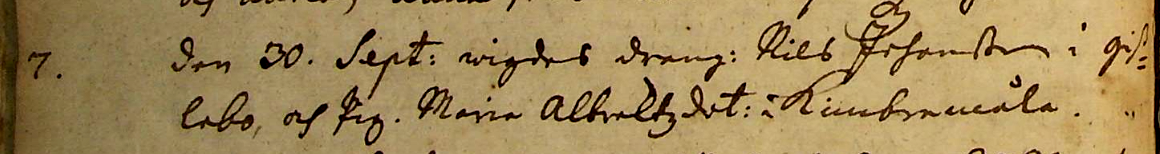 7. den 30. Sept: wigdes dräng: Nils Johansson i gis-
lebo, och Pig. Maria Albrektzdot: i Kimbramåla.